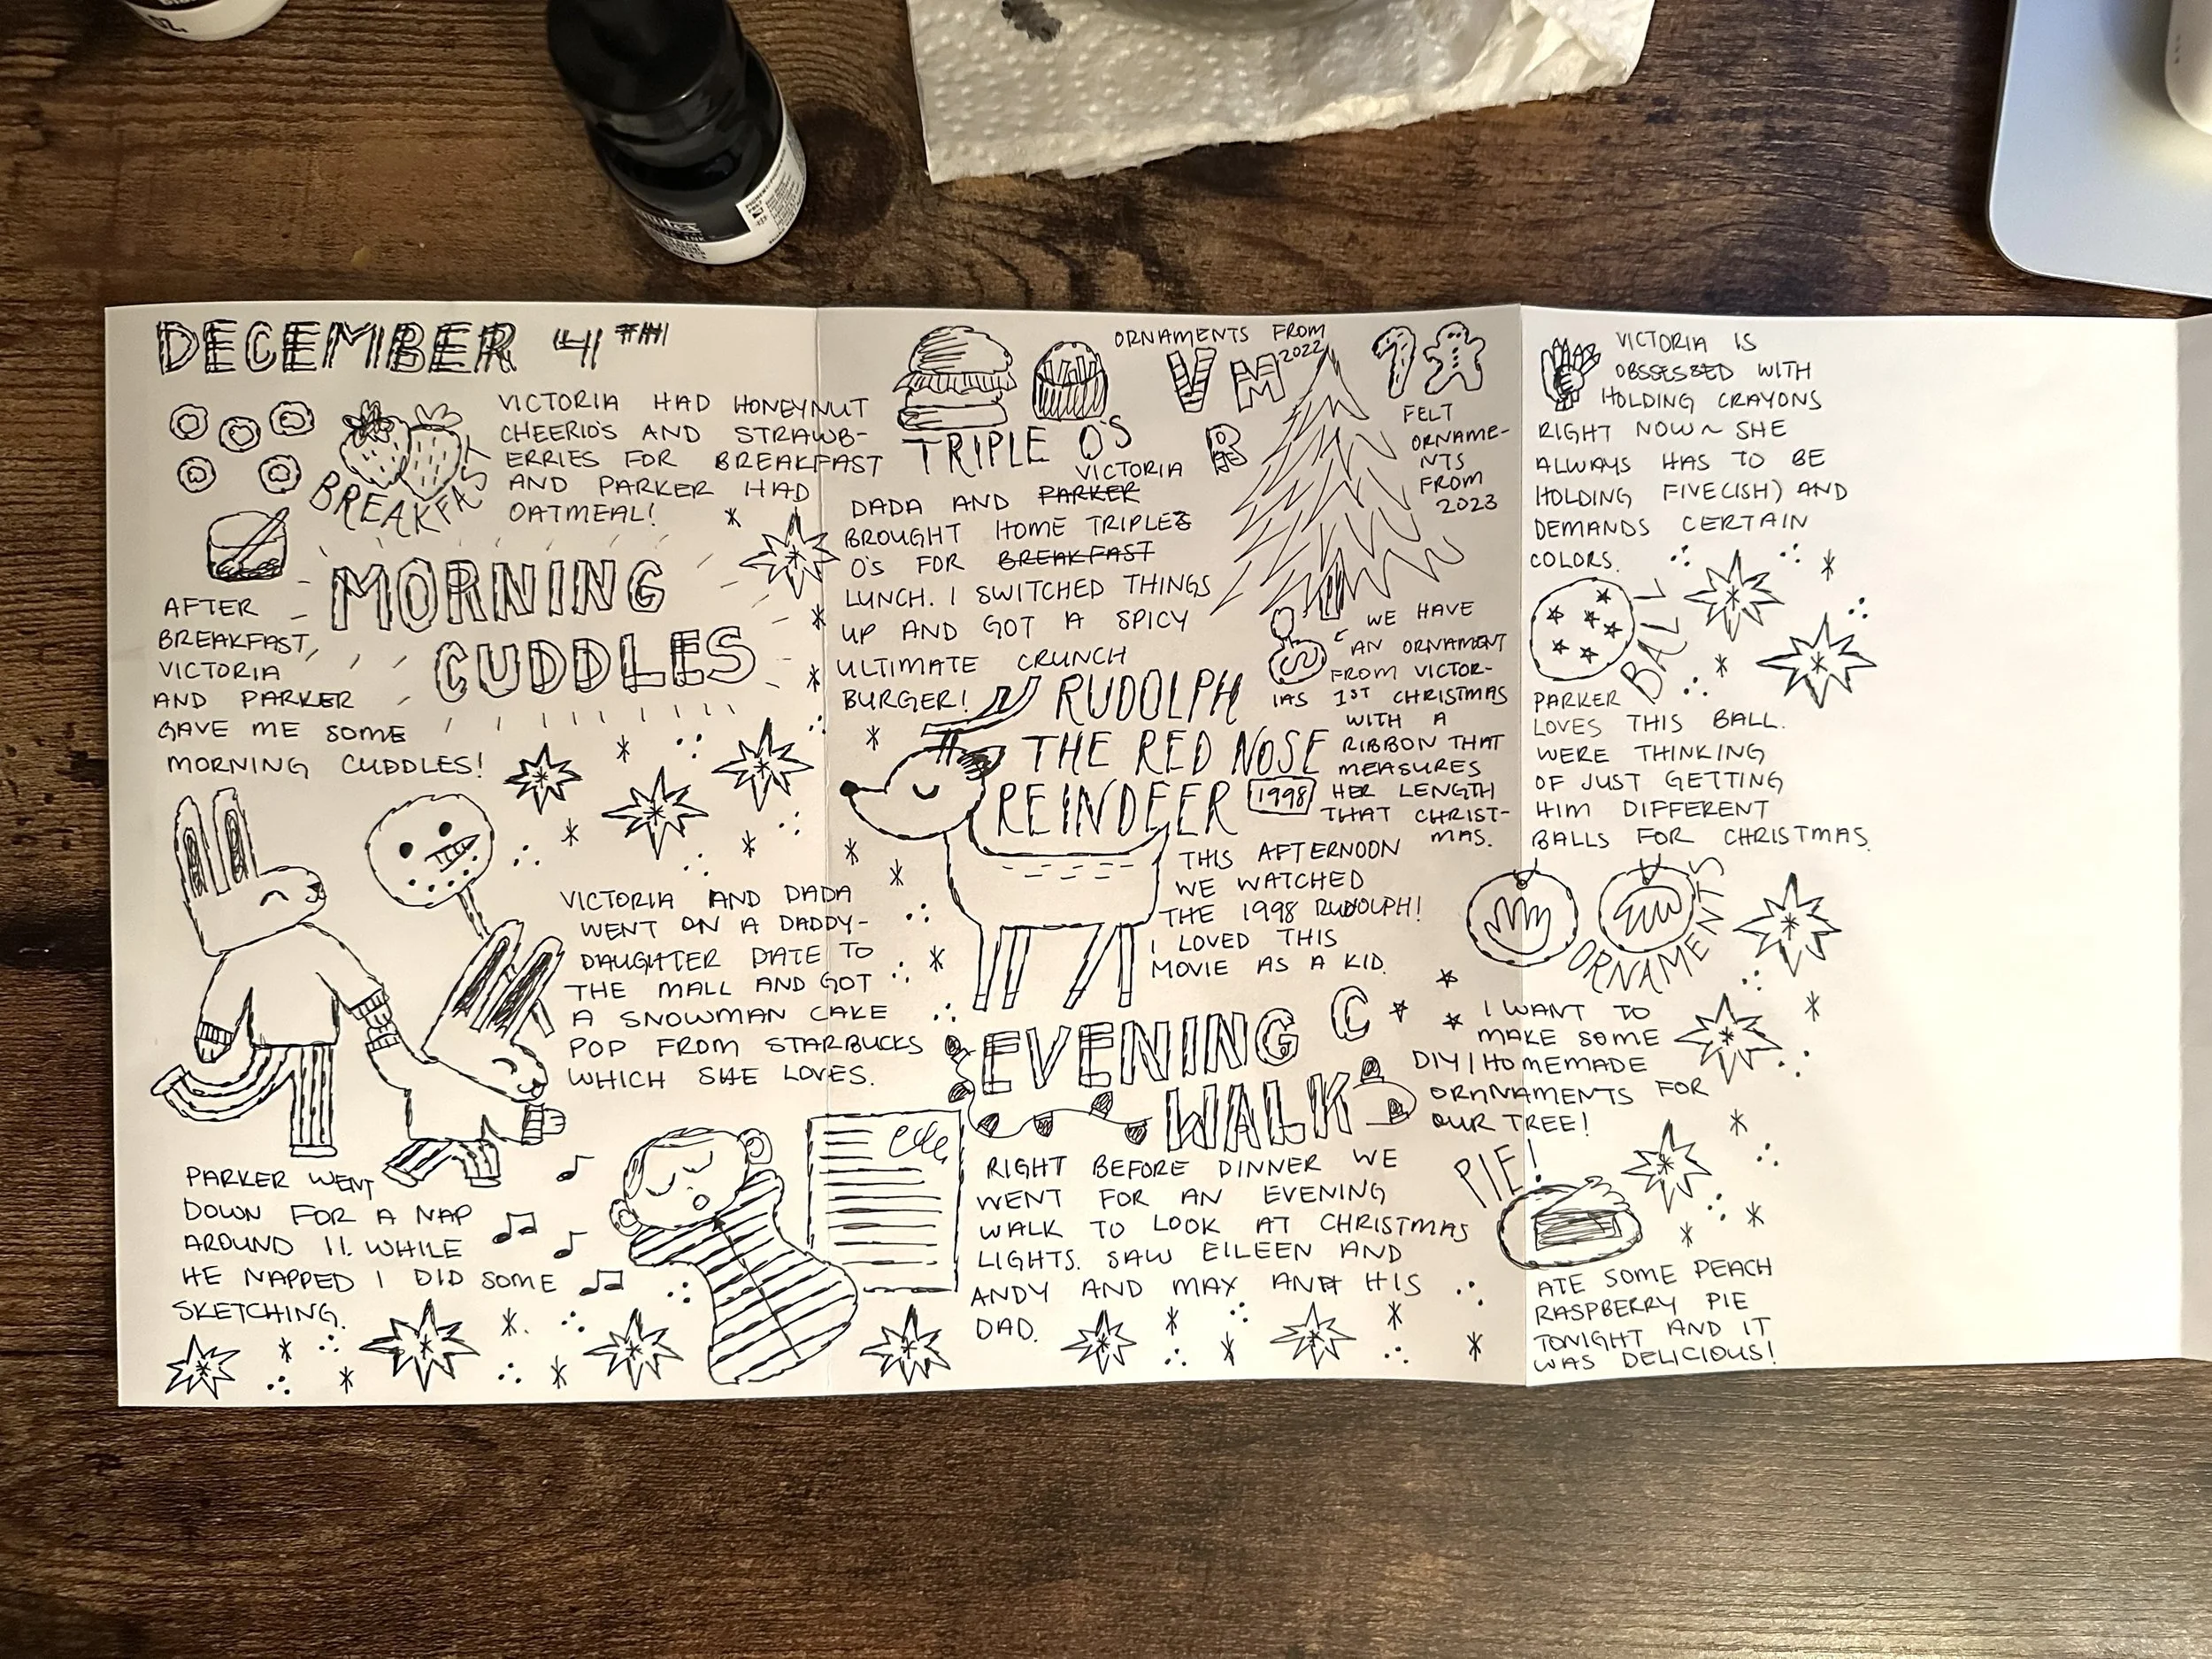 DECEMBER 4TH
VICTORIA HAD HONEYNUT
CHEERIO'S AND STRAWB-
ERRIES FOR BREAKFAST
AND PARKER HAD
OATMEAL!
BREAKFAST
MORNING
CUDDLES
AFTER
BREAKFAST,
VICTORIA
AND PARKER
GAVE ME SOME
MORNING CUDDLES!
VICTORIA AND DADA
WENT ON A DADDY-
DAUGHTER DATE TO
THE MALL AND GOT
A SNOWMAN CAKE
POP FROM STARBUCKS
WHICH SHE LOVES.
PARKER WENT
DOWN FOR A NAP
AROUND 11. WHILE
HE NAPPED I DID SOME
SKETCHING.
TRIPLE O'S
VICTORIA
DADA AND PARKER
BROUGHT HOME TRIPLE
O'S FOR BREAKFAST
LUNCH. I SWITCHED THINGS
UP AND GOT A SPICY
ULTIMATE CRUNCH
BURGER!
ORNAMENTS FROM
2022
V M
R
FELT
ORNAME-
NTS
FROM
2023
WE HAVE
AN ORNAMENT
FROM VICTOR-
IAS 1ST CHRISTMAS
WITH A
RIBBON THAT
MEASURES
HER LENGTH
THAT CHRIST-
MAS.
RUDOLPH
THE RED NOSE
REINDEER 1998
THIS AFTERNOON
WE WATCHED
THE 1998 RUDOLPH!
I LOVED THIS
MOVIE AS A KID.
EVENING
WALK
RIGHT BEFORE DINNER WE
WENT FOR AN EVENING
WALK TO LOOK AT CHRISTMAS
LIGHTS. SAW EILEEN AND
ANDY AND MAX AND HIS
DAD.
VICTORIA IS
OBSSESSED WITH
HOLDING CRAYONS
RIGHT NOW ~ SHE
ALWAYS HAS TO BE
HOLDING FIVE(ISH) AND
DEMANDS CERTAIN
COLORS.
BALL
PARKER
LOVES THIS BALL.
WERE THINKING
OF JUST GETTING
HIM DIFFERENT
BALLS FOR CHRISTMAS.
ORNAMENTS
I WANT TO
MAKE SOME
DIY/HOMEMADE
ORNNAMENTS FOR
OUR TREE!
PIE!
ATE SOME PEACH
RASPBERRY PIE
TONIGHT AND IT
WAS DELICIOUS!